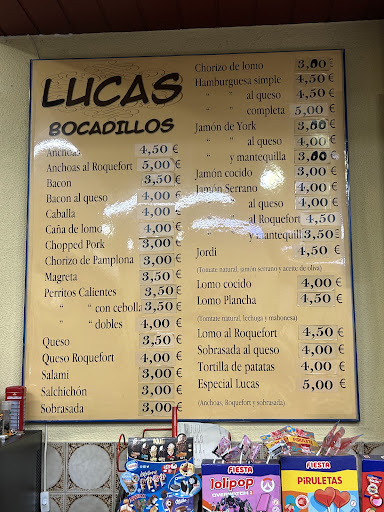 LUCAS
BOCADILLOS
Anchoas 4,50 €
Anchoas al Roquefort 5,00 €
Bacon 3,50 €
Bacon al queso 4,00 €
Caballa 4,00 €
Caña de lomo 4,00 €
Chopped Pork 3,00 €
Chorizo de Pamplona 3,00 €
Magreta 3,50 €
Perritos Calientes 3,50 €
" " con cebolla 3,50 €
" " dobles 4,00 €
Queso 3,50 €
Queso Roquefort 4,00 €
Salami 3,00 €
Salchichón 3,00 €
Sobrasada 3,00 €
Chorizo de lomo 3,00 €
Hamburguesa simple 4,50 €
" " al queso 4,50 €
" " completa 5,00 €
Jamón de York 3,00 €
" " al queso 4,00 €
" y mantequilla 3,00 €
Jamón cocido 3,00 €
Jamón Serrano 4,00 €
" al queso 4,00 €
" al Roquefort 4,50
" y mantequill 3,50
Jordi 4,50 €
(Tomate natural, jamón serrano y aceite de oliva)
Lomo cocido 4,00 €
Lomo Plancha 4,50 €
(Tomate natural, lechuga y mahonesa)
Lomo al Roquefort 4,50 €
Sobrasada al queso 4,00 €
Tortilla de patatas 4,00 €
Especial Lucas 5,00 €
(Anchoas, Roquefort y sobrasada)
FIESTA
lolipop
OVERWATCH
FIESTA
PIRULETAS